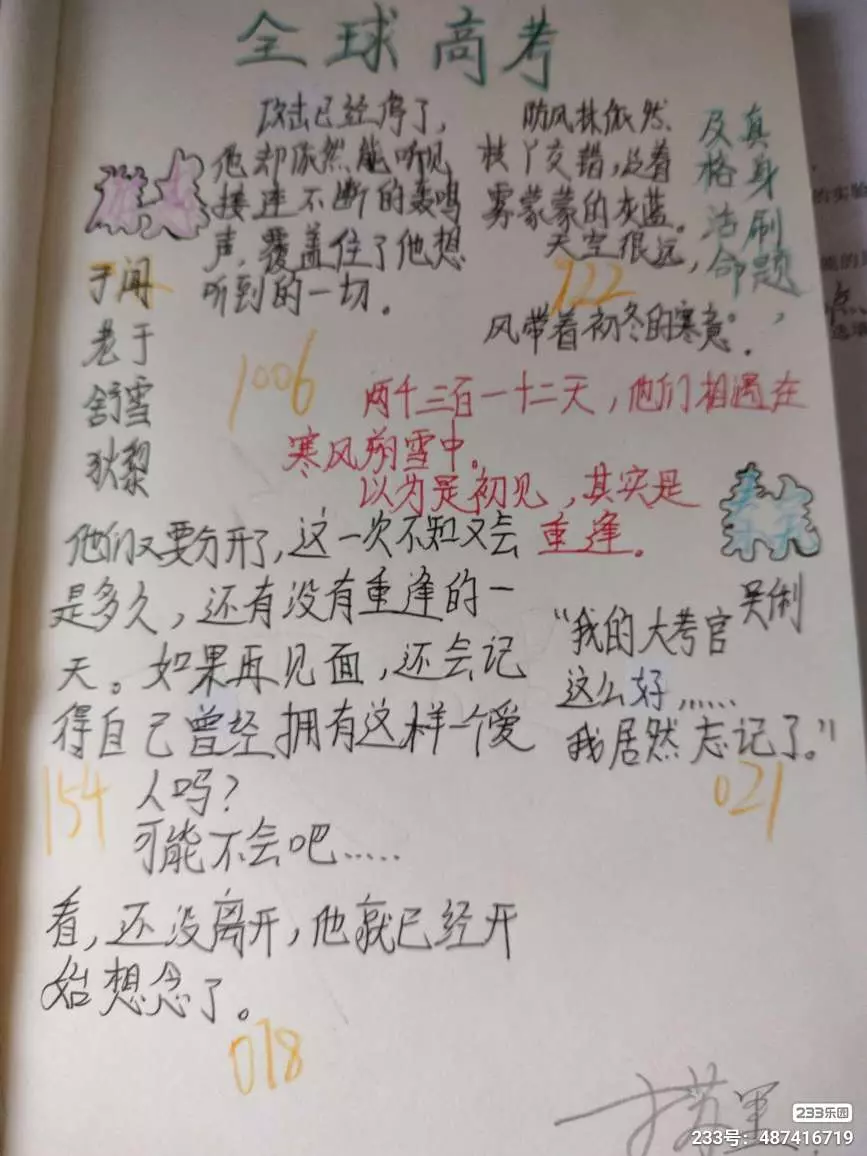 全球高考
攻击已经停了，
他却依然能听见
接连不断的轰鸣
声，覆盖住了他想
听到的一切。
防风林依然
枝丫交错，泛着
雾蒙蒙的灰蓝。
天空很远，
风带着初冬的寒意。
真身刷题，
及格法命
922
于闻
老于
舒雪
狄黎
1006
两千三百一十二天，他们相遇在
寒风朔雪中。
以为是初见，其实是
重逢。
秦究
吴俐
他们又要分开了，这一次不知又会
是多久，还有没有重逢的一
天。如果再见面，还会记
得自己曾经拥有这样一个爱
人吗？
可能不会吧……
154
“我的大考官
这么好……
我居然忘记了。”
021
看，还没离开，他就已经开
始想念了。
078
的实验
点
233乐园
233号：487416719